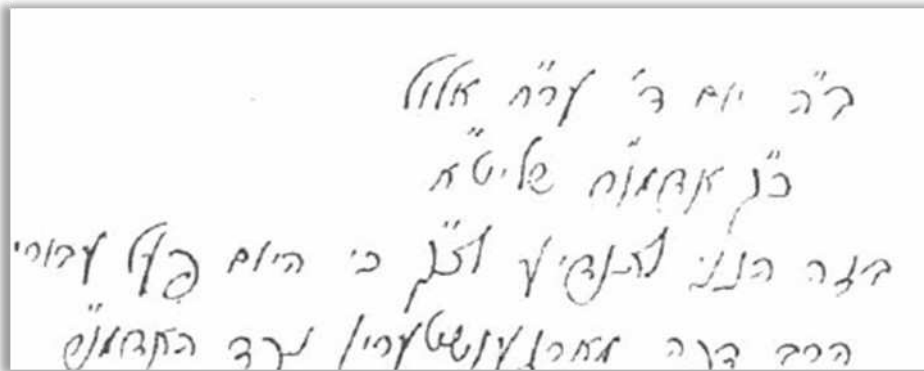 ב"ה יום ד' ער"ח אלול
כ"ק אדמו"ר שליט"א
בזה הנני להודיע לכ"ק כי היום פעל עבורי
הרב מארגענשטערין נכד האדמו"ר